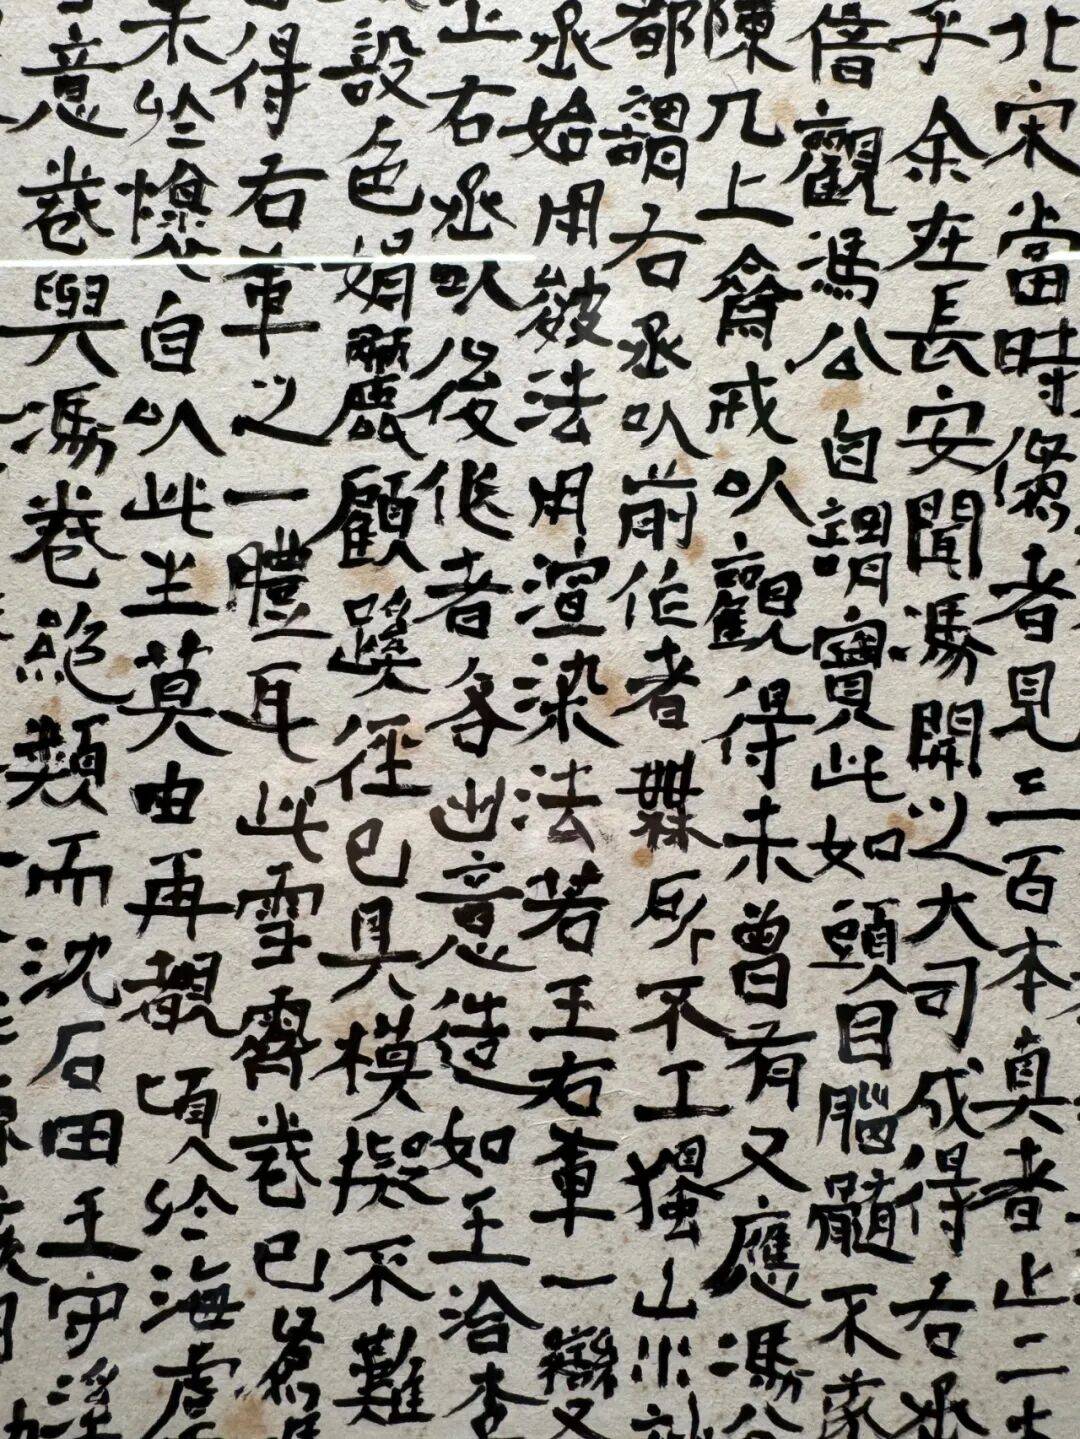 北宋當時偽者見三百本真者止二
乎余在長安聞馮開之大司成得右丞
借觀馮公自謂寶此如頭目腦髓不
陳几上齋戒以觀得未曾有又應馮公
都謂右丞以前作者無所不工獨山水
丞始用皴法用渲染法若王右軍一變
右丞以後作者各出意造如王洽李
設色娟麗顧蹊徑已具模擬不難
得右軍之一體耳此雪霽卷已
未於燥自以此生莫由再覩頃於海虞
意卷與馮卷絕類而沈石田王守溪